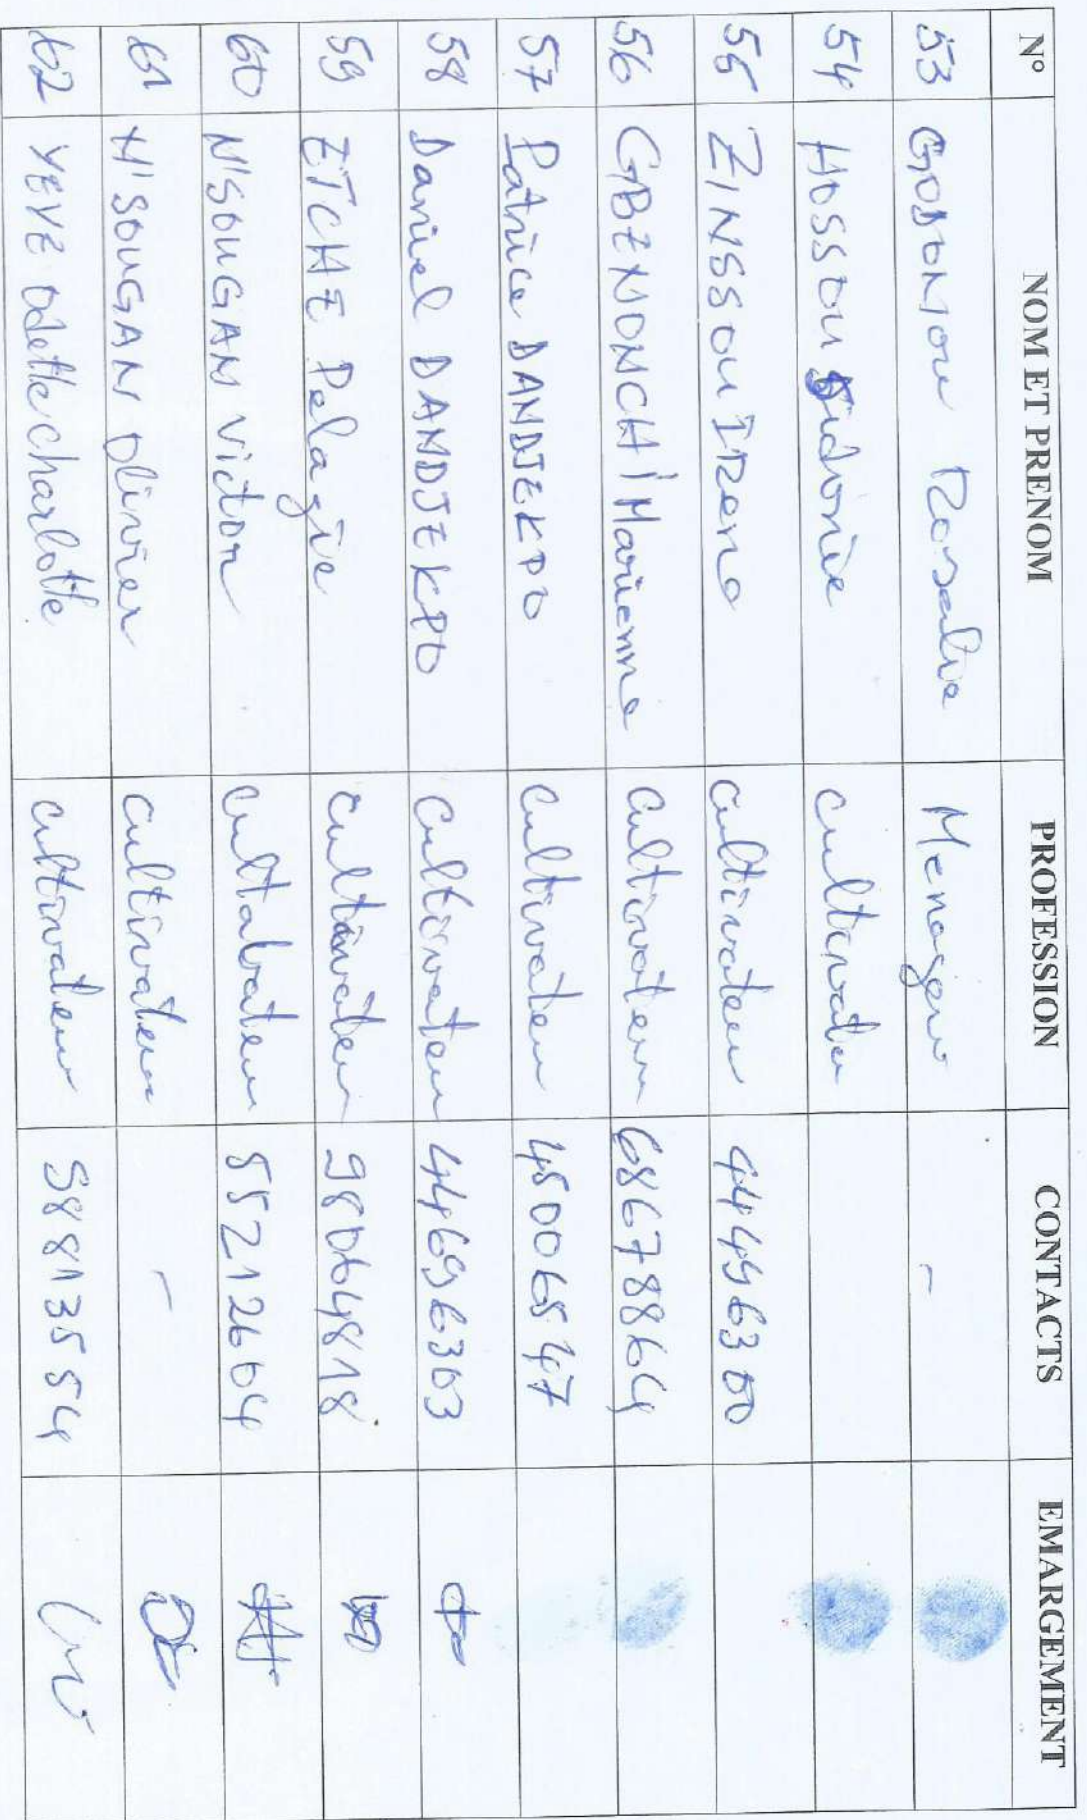 N° NOM ET PRENOM PROFESSION CONTACTS EMARGEMENT
53 GODONou Rosalie Menagere -
54 HOSSOU Sidonie cultivateu
55 ZINSSOU IRene cultivateur 44496300
56 GBENONCHI Marienne cultivateur 68678864
57 Patrice DANDJEKPO cultivateur 45006547
58 Daniel DANDJEKPO cultivateur 44696303
59 ETCHE Pelagie cultivateur 98064818
60 N'SOUGAN Victor cultabateur 55212604
61 N'SOUGAN Olivier cultivateur -
62 YEVE Odette charlotte cultivateur 58813554